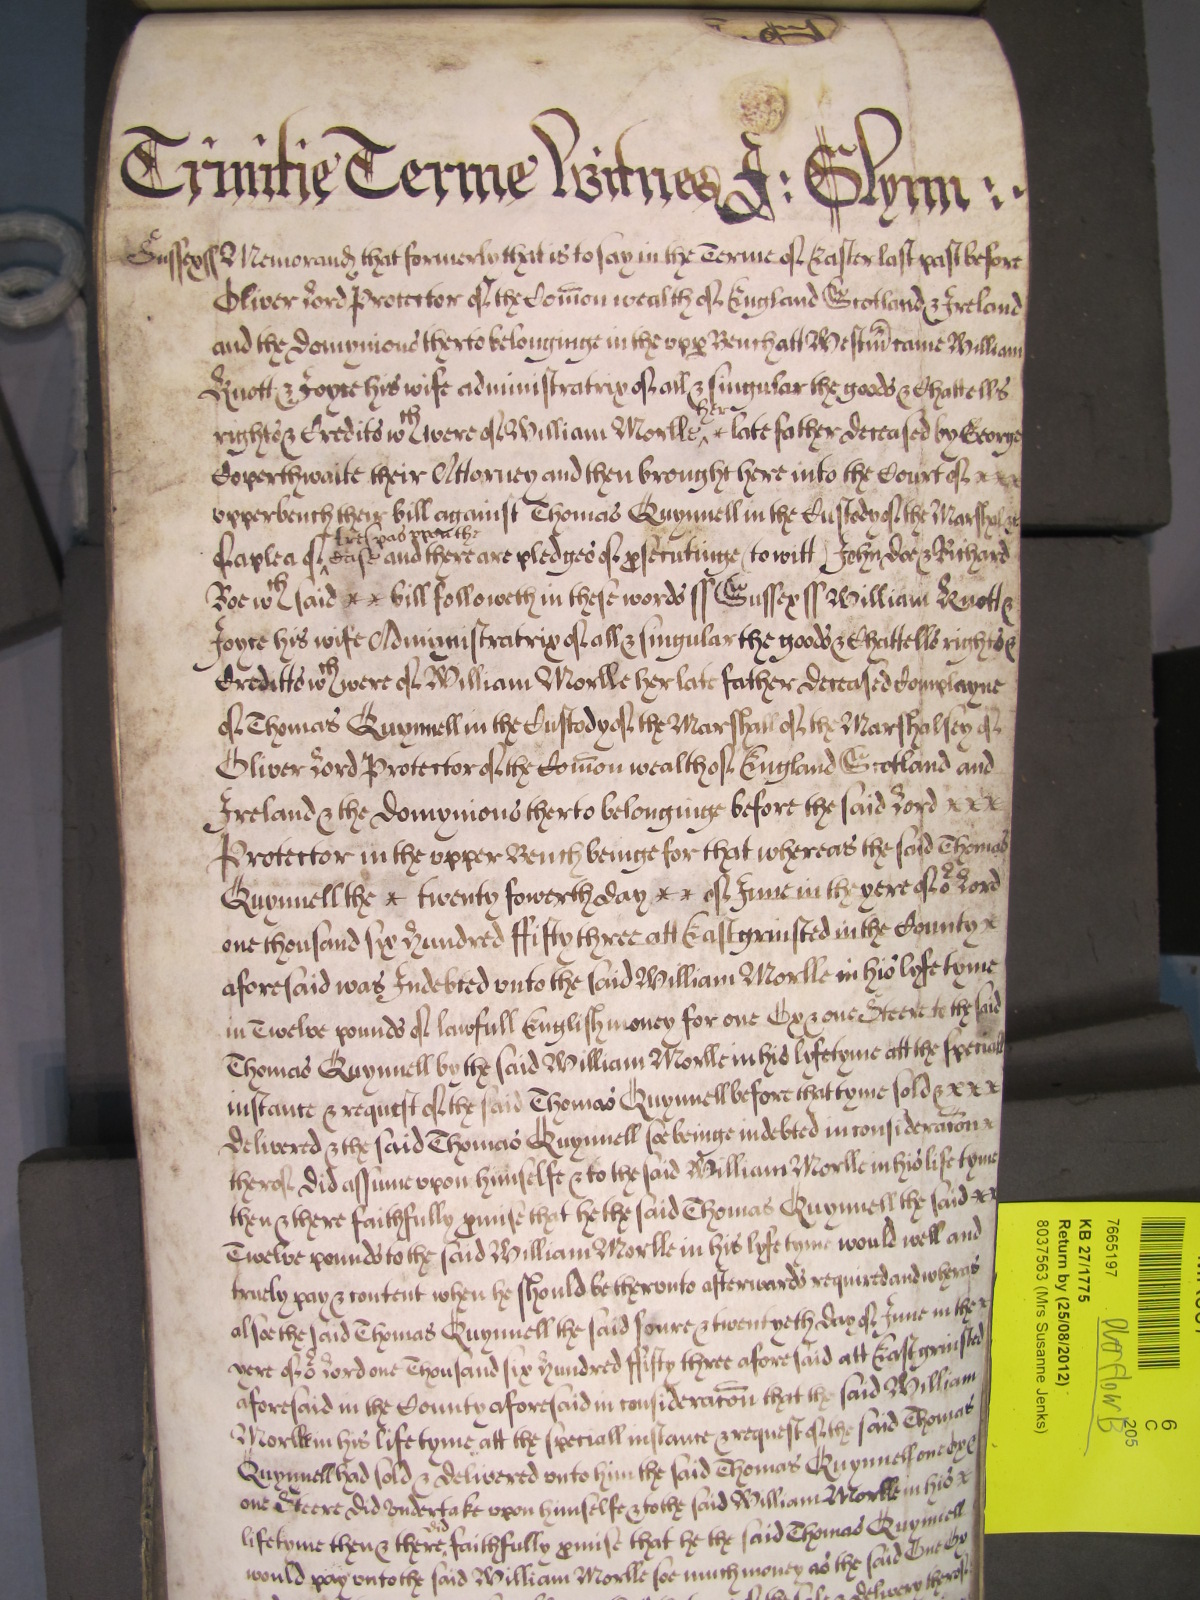 Trinitie Terme Witnes J: Glynn
Sussex ss Memorand that formerly that is to say in the Terme of Easter last past before
Oliver Lord Protector of the Com̄on wealth of England Scotland & Ireland
and the Domynions therto belonginge in the upp Bench att Westm̄ came William
Knott & Joyce his wife administratrix of all & singular the goods & Chattells
rights & Credits wth were of William Morlle her x late father deceased by George
Coperthwaite their Attorney and then brought here into the Court of x x x
upperbench their bill against Thomas Quynnell in the Custody of the Marshal &c
of a plea of trespas upon the Case and there are pledges of psecutinge (to witt) John Doe & Richard
Roe wth said x x bill followeth in these words ss Sussex ss William Knott &
Joyce his wife Administratrix of all & singular the goods & Chattells rights &
Creditts wth were of William Morlle her late father deceased Complayne
of Thomas Quynnell in the Custody of the Marshall of the Marshalsey of
Oliver Lord Protector of the Com̄on wealth of England Scotland and
Ireland & the Domynions therto belonginge before the said Lord x x x
Protector in the upper Bench beinge for that whereas the said Thomas
Quynnell the x twenty fowerth day x x of June in the yere of or Lord
one thousand six hundred fifty three att Eastgrinsted in the County x
aforesaid was Indebted unto the said William Morlle in his lyfe tyme
in Twelve pounds of lawfull English money for one Ox & one Steere to the said
Thomas Quynnell by the said William Morlle in his lyfe tyme att the speciall
instance & request of the said Thomas Quynnell before that tyme sold & x x x
delivered & the said Thomas Quynnell soe beinge indebted in consideratōn x
therof did assume upon himselfe & to the said William Morlle in his life tyme
then & there faithfully pmise that he the said Thomas Quynnell the said x x
Twelve pounds to the said William Morlle in his lyfe tyme would well and
truely pay & content when he should be therunto afterwards required and wheras
alsoe the said Thomas Quynnell the said foure & twentyeth day of June in the x
yere of or Lord one Thousand six hundred fifty three aforesaid att Eastgrinsted
aforesaid in the County aforesaid in consideratōn that the said William
Morlle in his life tyme att the speciall instance & request of the said Thomas
Quynnell had sold & delivered unto him the said Thomas Quynnell one Ox &
one Steere did undertake upon himselfe & to the said William Morlle in his x
lifetyme then & there did faithfully pmise that he the said Thomas Quynnell
would pay unto the said William Morlle soe much money as the said One Ox
delivery therof
6
C
205
7665197
KB 27/1775
Return by (25/08/2012)
8037563 (Mrs Susanne Jenks)